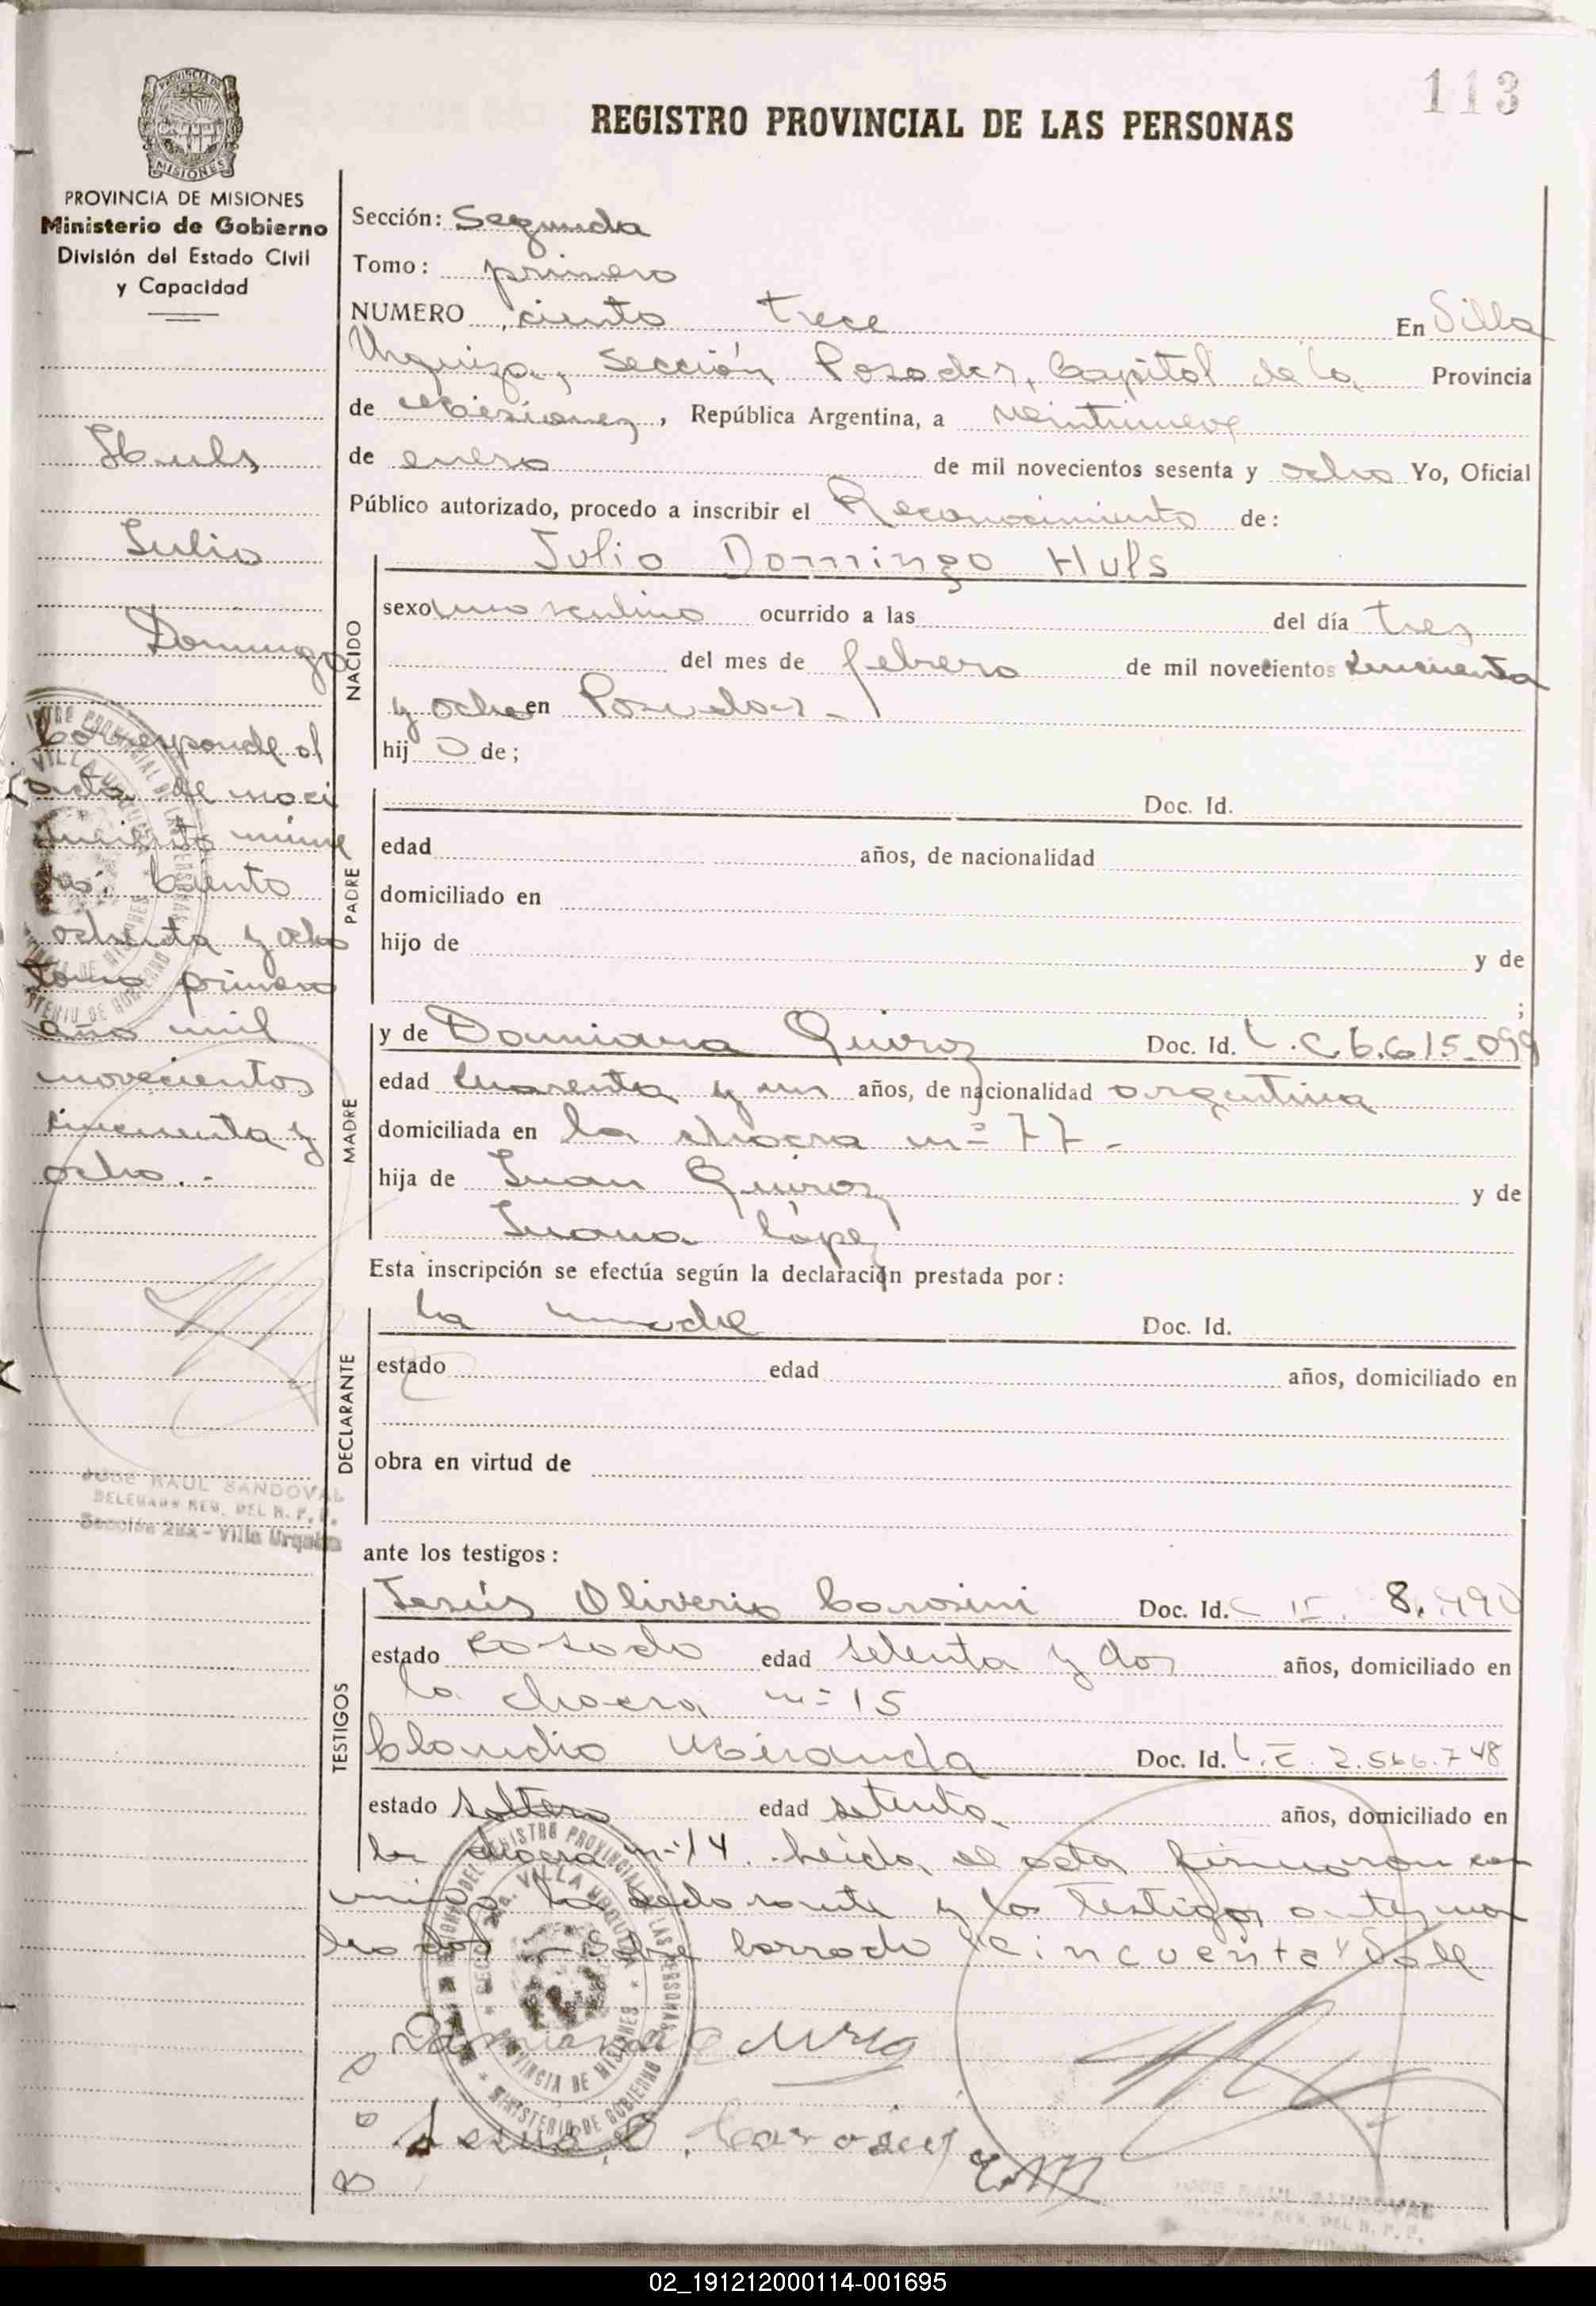 113
REGISTRO PROVINCIAL DE LAS PERSONAS
PROVINCIA DE MISIONES
Ministerio de Gobierno
División del Estado Civil
y Capacidad
Huls
Julio
Domingo
Corresponde al
acta de naci
miento núme
ro: Ciento
ochenta y ocho
tomo primero
año mil
novecientos
cincuenta y
ocho.-
JOSE RAUL SANDOVAL
DELEGADO REG. DEL R. P. P.
Sección 2da - Villa Urquiza
Sección: Segunda
Tomo: primero
NUMERO ciento trece En Villa
Urquiza, Sección Posadas, Capital de la Provincia
de Misiones, República Argentina, a veintinueve
de enero de mil novecientos sesenta y ocho Yo, Oficial
Público autorizado, procedo a inscribir el Reconocimiento de:
Julio Domingo Huls
NACIDO
sexo masculino ocurrido a las del día tres
del mes de febrero de mil novecientos cincuenta
y ocho en Posadas -
hij o de;
PADRE
Doc. Id.
edad años, de nacionalidad
domiciliado en
hijo de y de
;
MADRE
y de Damiana Quiroz Doc. Id. L.C 6.615.099
edad cuarenta y un años, de nacionalidad argentina
domiciliada en la chacra nº 77 -
hija de Juan Quiroz y de
Juana López
Esta inscripción se efectúa según la declaración prestada por:
DECLARANTE
la madre Doc. Id.
estado edad años, domiciliado en
obra en virtud de
ante los testigos:
TESTIGOS
Jesús Oliverio Carosini Doc. Id.
estado casado edad setenta y dos años, domiciliado en
la chacra nº 15
Claudio Miranda Doc. Id. L.E. 2.566.748
estado soltero edad setenta años, domiciliado en
la chacra nº 14. Leída el acta firmaron con
migo la declarante y los testigos antes nom
brados - Sobre borrado "cincuenta" Vale
REGISTRO PROVINCIAL DE LAS PERSONAS
VILLA URQUIZA
PROVINCIA DE MISIONES
MINISTERIO DE GOBIERNO
JOSE RAUL SANDOVAL
02_191212000114-001695